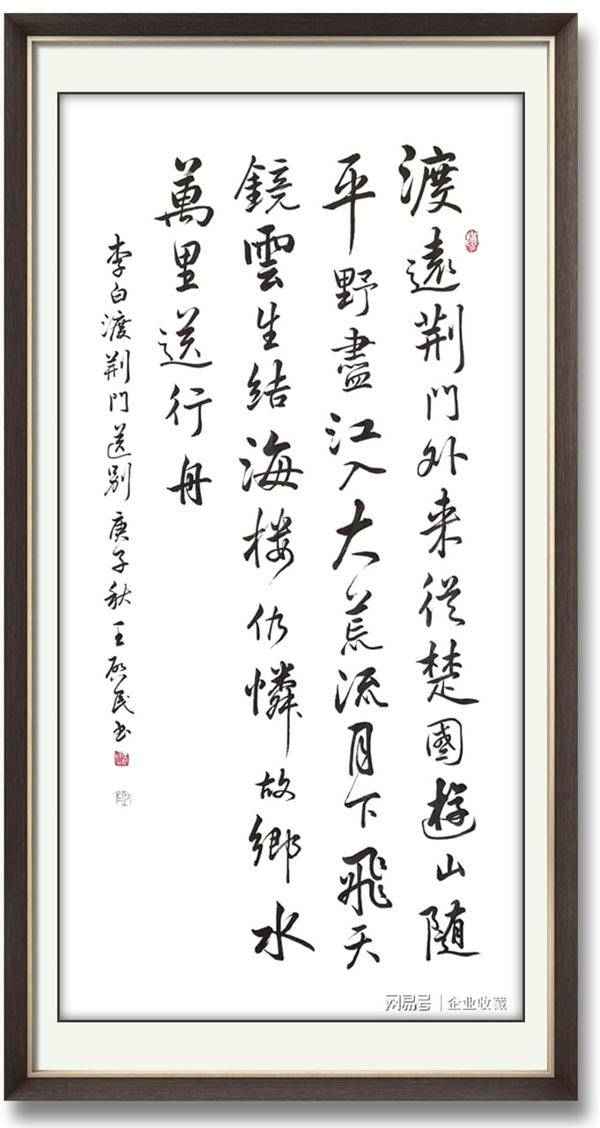 渡遠荆門外来從楚國遊山随
平野盡江入大荒流月下飛天
鏡雲生结海楼仍憐故鄉水
萬里送行舟
李白渡荆門送别 庚子秋 王启民书
网易号 | 企业收藏